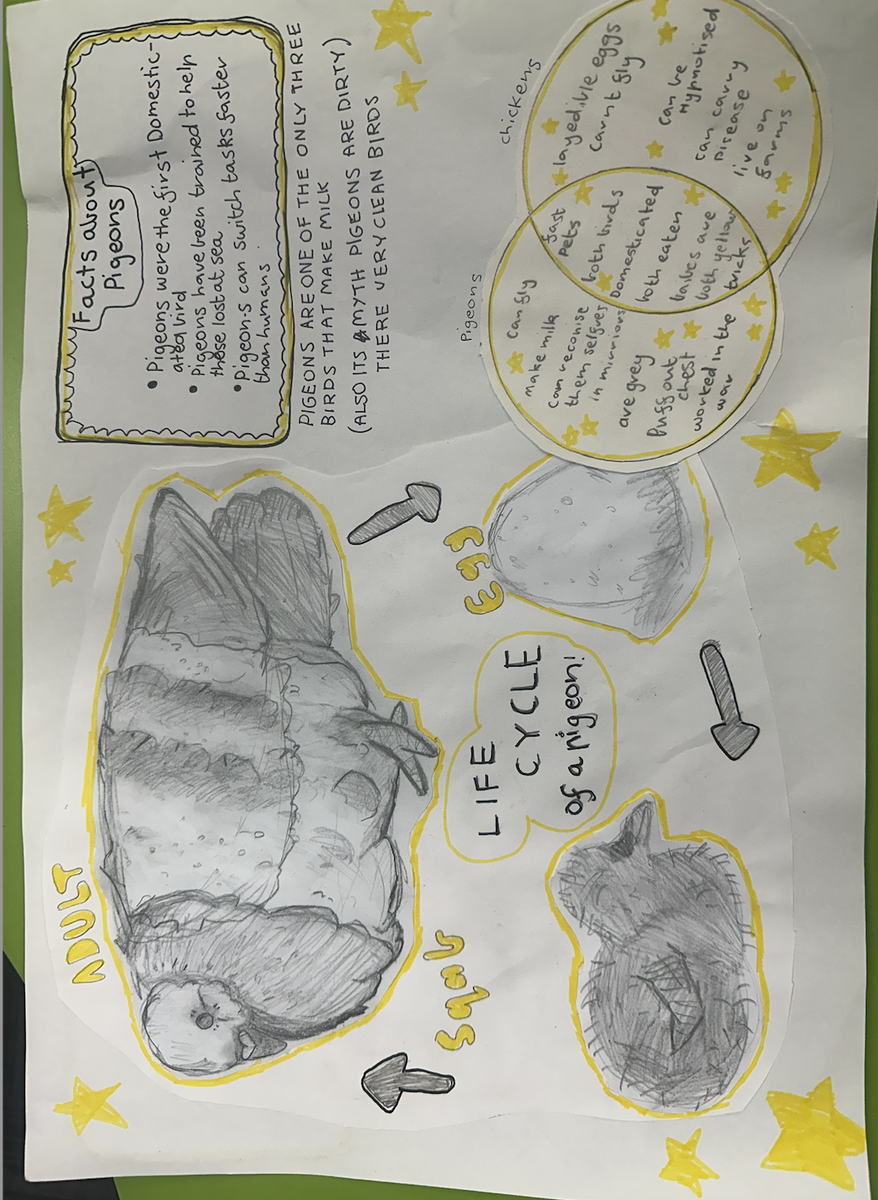 Facts about
Pigeons
• Pigeons were the first Domestic-
ated bird
• Pigeons have been trained to help
those lost at sea
• Pigeons can switch tasks faster
than humans.
PIGEONS ARE ONE OF THE ONLY THREE
BIRDS THAT MAKE MILK
(ALSO ITS A MYTH PIGEONS ARE DIRTY)
THERE VERY CLEAN BIRDS
Pigeons
can fly
make milk
can reconise
them selfves
in mirriors
are grey
Puff out
chest
worked in the
war
fast
Pets
both birds
Domesticated
both eaten
baibes are
both yellow
tricks
chickens
lay edible eggs
carnt fly
can be
Hypnotised
can carry
Disease
live on
farms
LIFE
CYCLE
of a pigeon!
Egg
Squb
ADULT